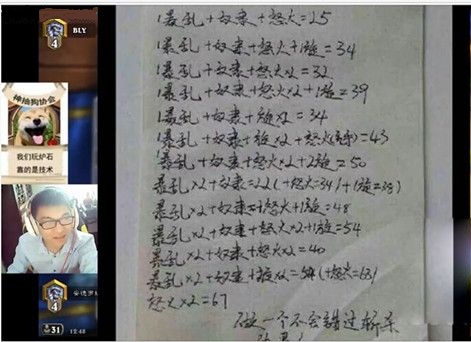 BLY
4
神抽狗协会
我们玩炉石
靠的是技术
4
31 12:48
1暴乱+奴隶+怒火=25
1暴乱+奴隶+怒火+1旋=34
1暴乱+奴隶+怒火x2=32
1暴乱+奴隶+怒火x2+1旋=39
1暴乱+奴隶+旋x2=34
1暴乱+奴隶+旋x2+怒火=43
1暴乱+奴隶+怒火x2+2旋=50
暴乱x2+奴隶=22(+怒火=34/+1旋=38)
暴乱x2+奴隶+1怒火+1旋=48
暴乱x2+奴隶+怒火x2+1旋=54
暴乱x2+奴隶+怒火x2=40
暴乱x2+奴隶+旋x2=54(+怒火=63/
怒火x2=67
做一个不会错过斩杀